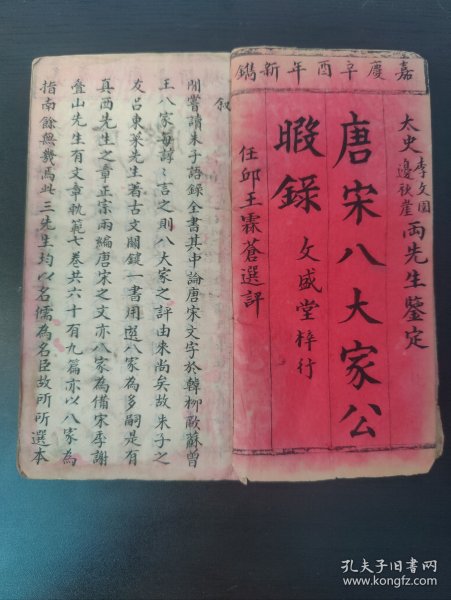 嘉慶辛酉年新鐫
太史李文園邊秋崖兩先生鑒定
唐宋八大家公
暇錄
文盛堂梓行
任邱王霖蒼選評
叙
閒嘗讀朱子語錄全書其中論唐宋文字於韓柳歐蘇曾
王八家每諄諄言之則八大家之評由来尚矣故朱子之
友呂東萊先生著古文關鍵一書用選八家為多嗣是有
真西先生之章正宗兩編唐宋之文亦八家為備宋季謝
疊山先生有文章軌範七巻共六十有九篇亦以八家為
指南餘無幾焉此三先生均以名儒為名臣故所所選本
孔夫子旧书网
www.kongfz.com